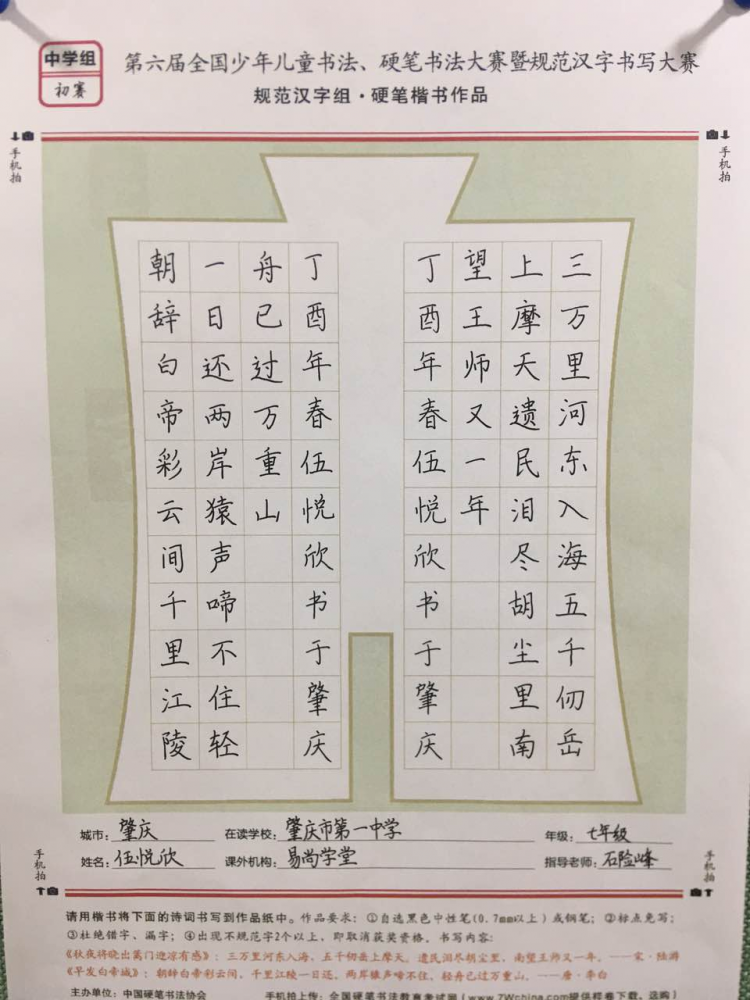 中学组
初赛
第六届全国少年儿童书法、硬笔书法大赛暨规范汉字书写大赛
规范汉字组·硬笔楷书作品
手机拍
手机拍
三万里河东入海五千仞岳
上摩天遗民泪尽胡尘里南
望王师又一年
丁酉年春伍悦欣书于肇庆
朝辞白帝彩云间千里江陵
一日还两岸猿声啼不住轻
舟已过万重山
丁酉年春伍悦欣书于肇庆
城市：肇庆 在读学校：肇庆市第一中学 年级：七年级
姓名：伍悦欣 课外机构：易尚学堂 指导老师：石险峰
手机拍
手机拍
请用楷书将下面的诗词书写到作品纸中。作品要求：①自选黑色中性笔(0.7mm以上)或钢笔；②标点免写；
③杜绝错字、漏字；④出现不规范字2个以上，即取消获奖资格。书写内容：
《秋夜将晓出篱门迎凉有感》：三万里河东入海，五千仞岳上摩天。遗民泪尽胡尘里，南望王师又一年。——宋·陆游
《早发白帝城》：朝辞白帝彩云间，千里江陵一日还。两岸猿声啼不住，轻舟已过万重山。——唐·李白
主办单位：中国硬笔书法协会 手机拍上传：全国硬笔书法教育考试网(www.7Wchina.com提供样卷下载，选购)